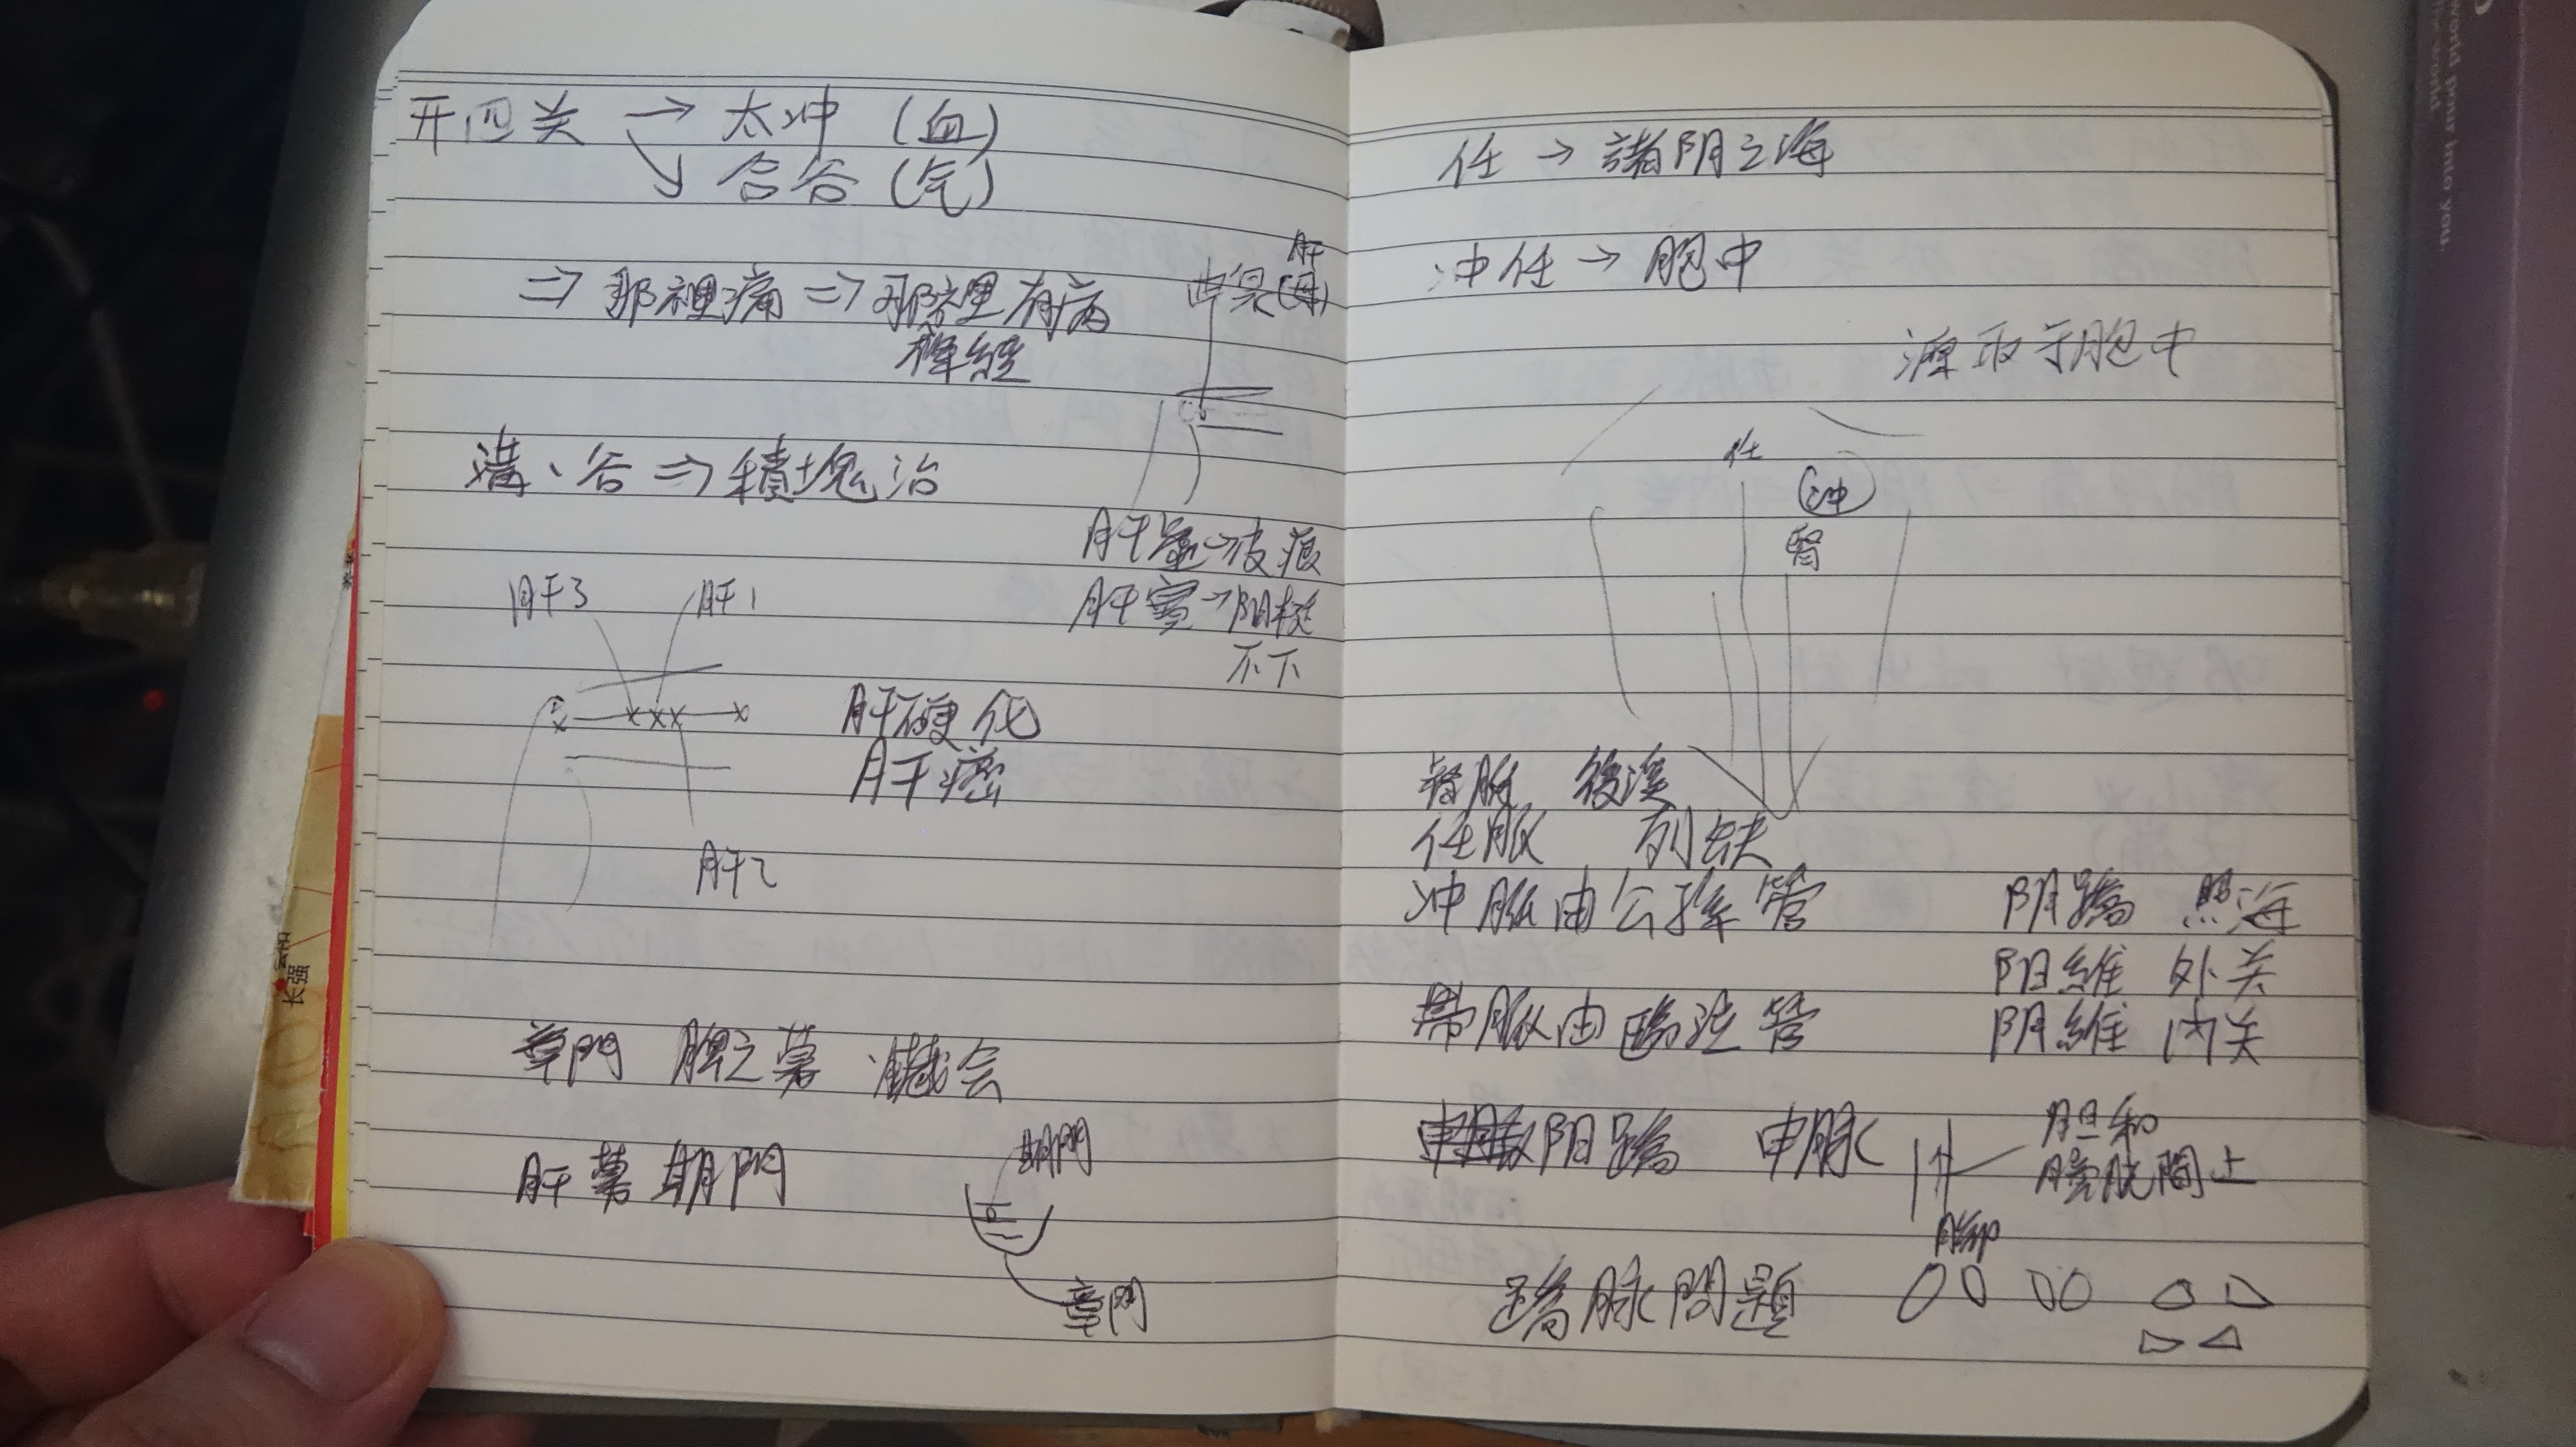 开四关 → 太冲 (血)
↘ 合谷 (气)
⇒ 那裡痛 ⇒ 那裡有病
擇經
肝
曲泉(母)
溝、谷 ⇒ 積塊治
肝虛→疲痕
肝實→阴挺
不下
肝3
肝1
肝硬化
肝癌
肝2
章門 脾之募 臟会
肝募期門
期門
章門
任 → 諸阴之海
冲任 → 胞中
源取于胞中
任
冲
腎
督脈 後溪
任脈 列缺
冲脈由公孫管
帶脈由臨泣管
阴蹻 照海
阳維 外关
阴維 内关
阳蹻 申脉
胆和
膀胱間上
腳
蹻脉問題
world pour into you.
the world.
长强